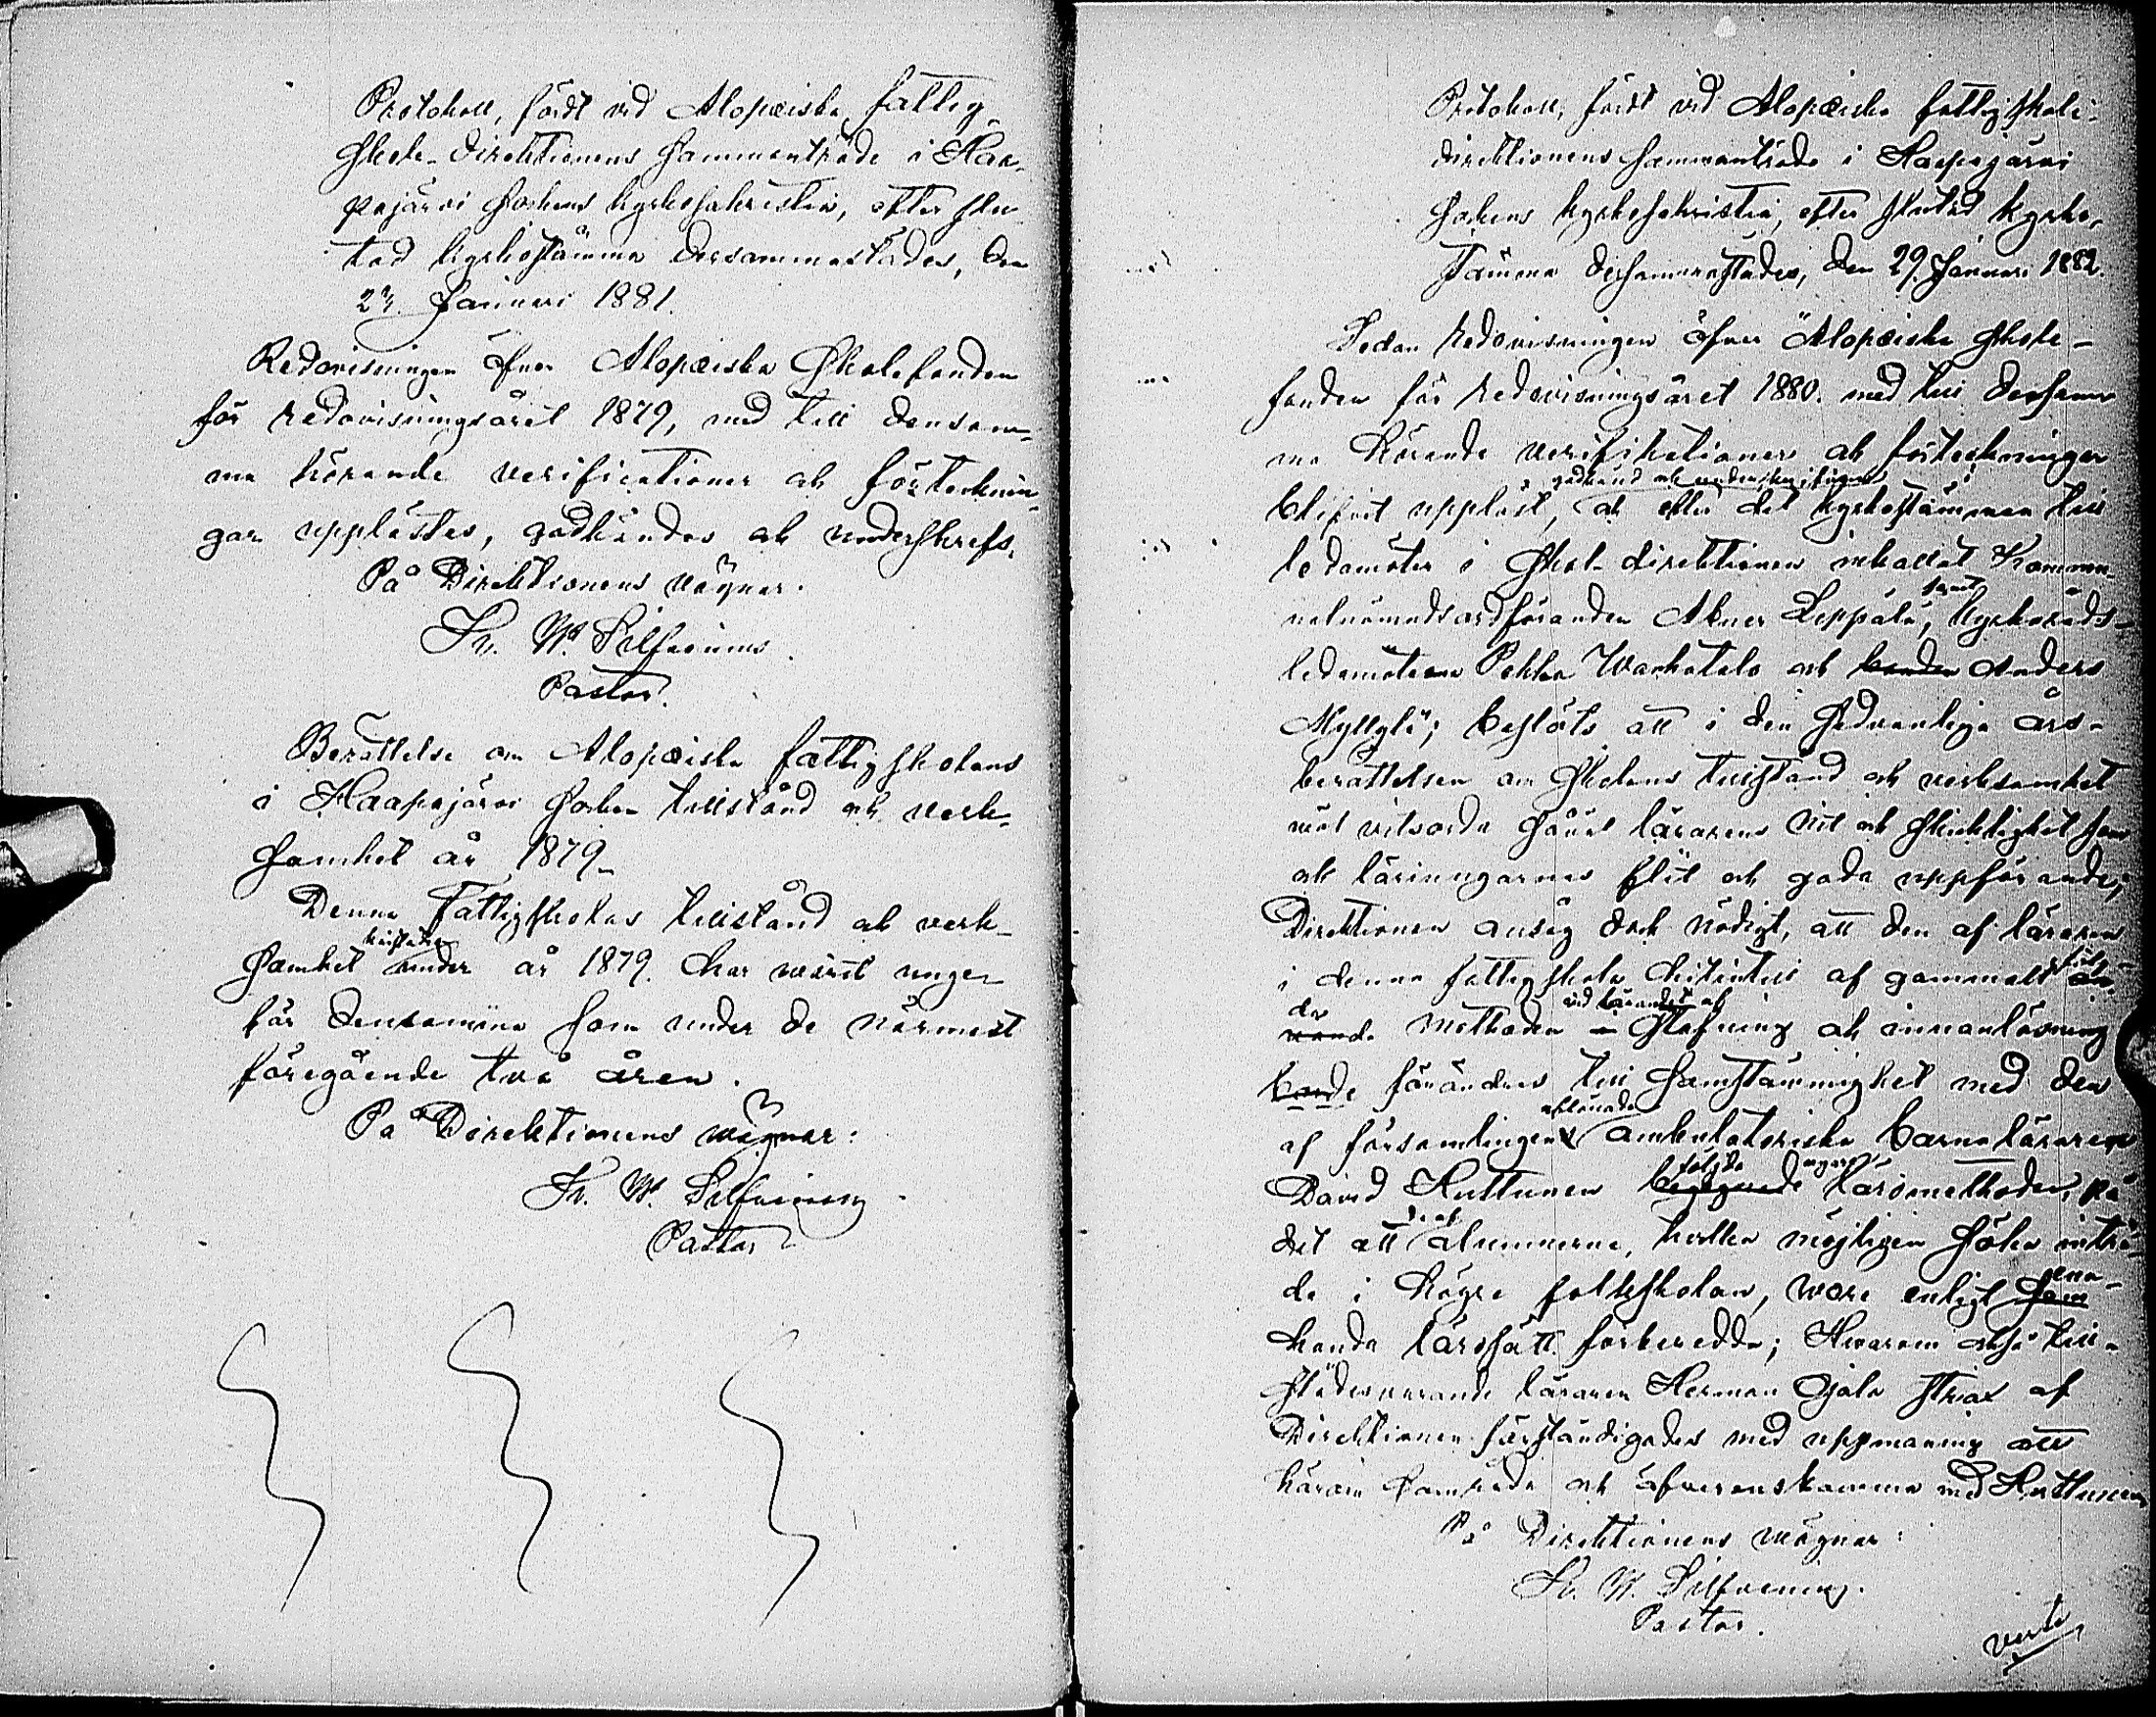 Protokoll, fördt vid Alopæiska fattig-
skole-direktionens sammanträde i Haa-
pajärvi sockens kyrkosakristia, efter slu-
tad kyrkostämma dersammastädes, den
23. Januari 1881.
Redovisningen öfver Alopæiska Skolefonden
för redovisningsåret 1879, med till densam-
ma hörande verificationer och förtecknin-
gar upplästes, godkändes och underskrefs.
På Direktionens vägnar.
Fr. W. Silfvenius
Pastor.
Berättelse om Alopæiska fattigskolans
i Haapajärvi socken tillstånd och verk-
samhet år 1879.
Denna Fattigskolas tillstånd och verk-
samhet under år 1879. har varit unge-
fär densamma som under de närmast
föregående två åren.
På Direktionens vägnar:
Fr. W. Silfvenius
Pastor
Protokoll, fördt vid Alopæiska fattigskole-
direktionens sammanträde i Haapajärvi
sockens kyrkosakristia, efter slutad kyrko-
stämma dersammastädes, den 29. Januari 1882.
Sedan redovisningen öfver Alopæiska skole-
fonden för redovisningsåret 1880. med till densam-
ma hörande verifikationer och förteckningar
godkänd och underskrifven
blifvit uppläst, och efter det kyrkostämman till
ledamöter i skol-direktionen inkallat Kommu-
nalnämndsordföranden Abner Leppälä, samt kyrkoråds-
ledamoten Pekka Wanhatalo och bonden Anders
Myllylä; beslöts att i den sedvanliga års-
berättelsen om skolans tillstånd och verksamhet
väl vitsorda såväl lärarens nit och skicklighet som
ock läringarnes flit och goda uppförande;
Direktionen ansåg dock nödigt, att den af läraren
i denna fattigskola hitintill af gammalt
vid lärandet af
methoden i stafning och innanläsning
borde förändras till samstämmighet med den
aflönade
af församlingen ambulatoriska barnaläraren
följda
David Huttunen begagnade läromethoden, på
det att de af alumnerna, hvilka möjligen söka inträ-
de i högre folkskolan, vore enligt ena-
handa lärosätt förberedda; Hvarom också till-
städesvarande läraren Herman Ojala strax af
Direktionen förständigades med uppmaning att
härom samråda och öfverenskomma med Huttunen
På Direktionens vägnar:
Fr. W. Silfvenius.
Pastor.
verte